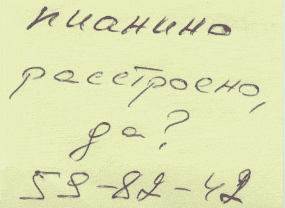 пианино
расстроено,
да?
59-82-42